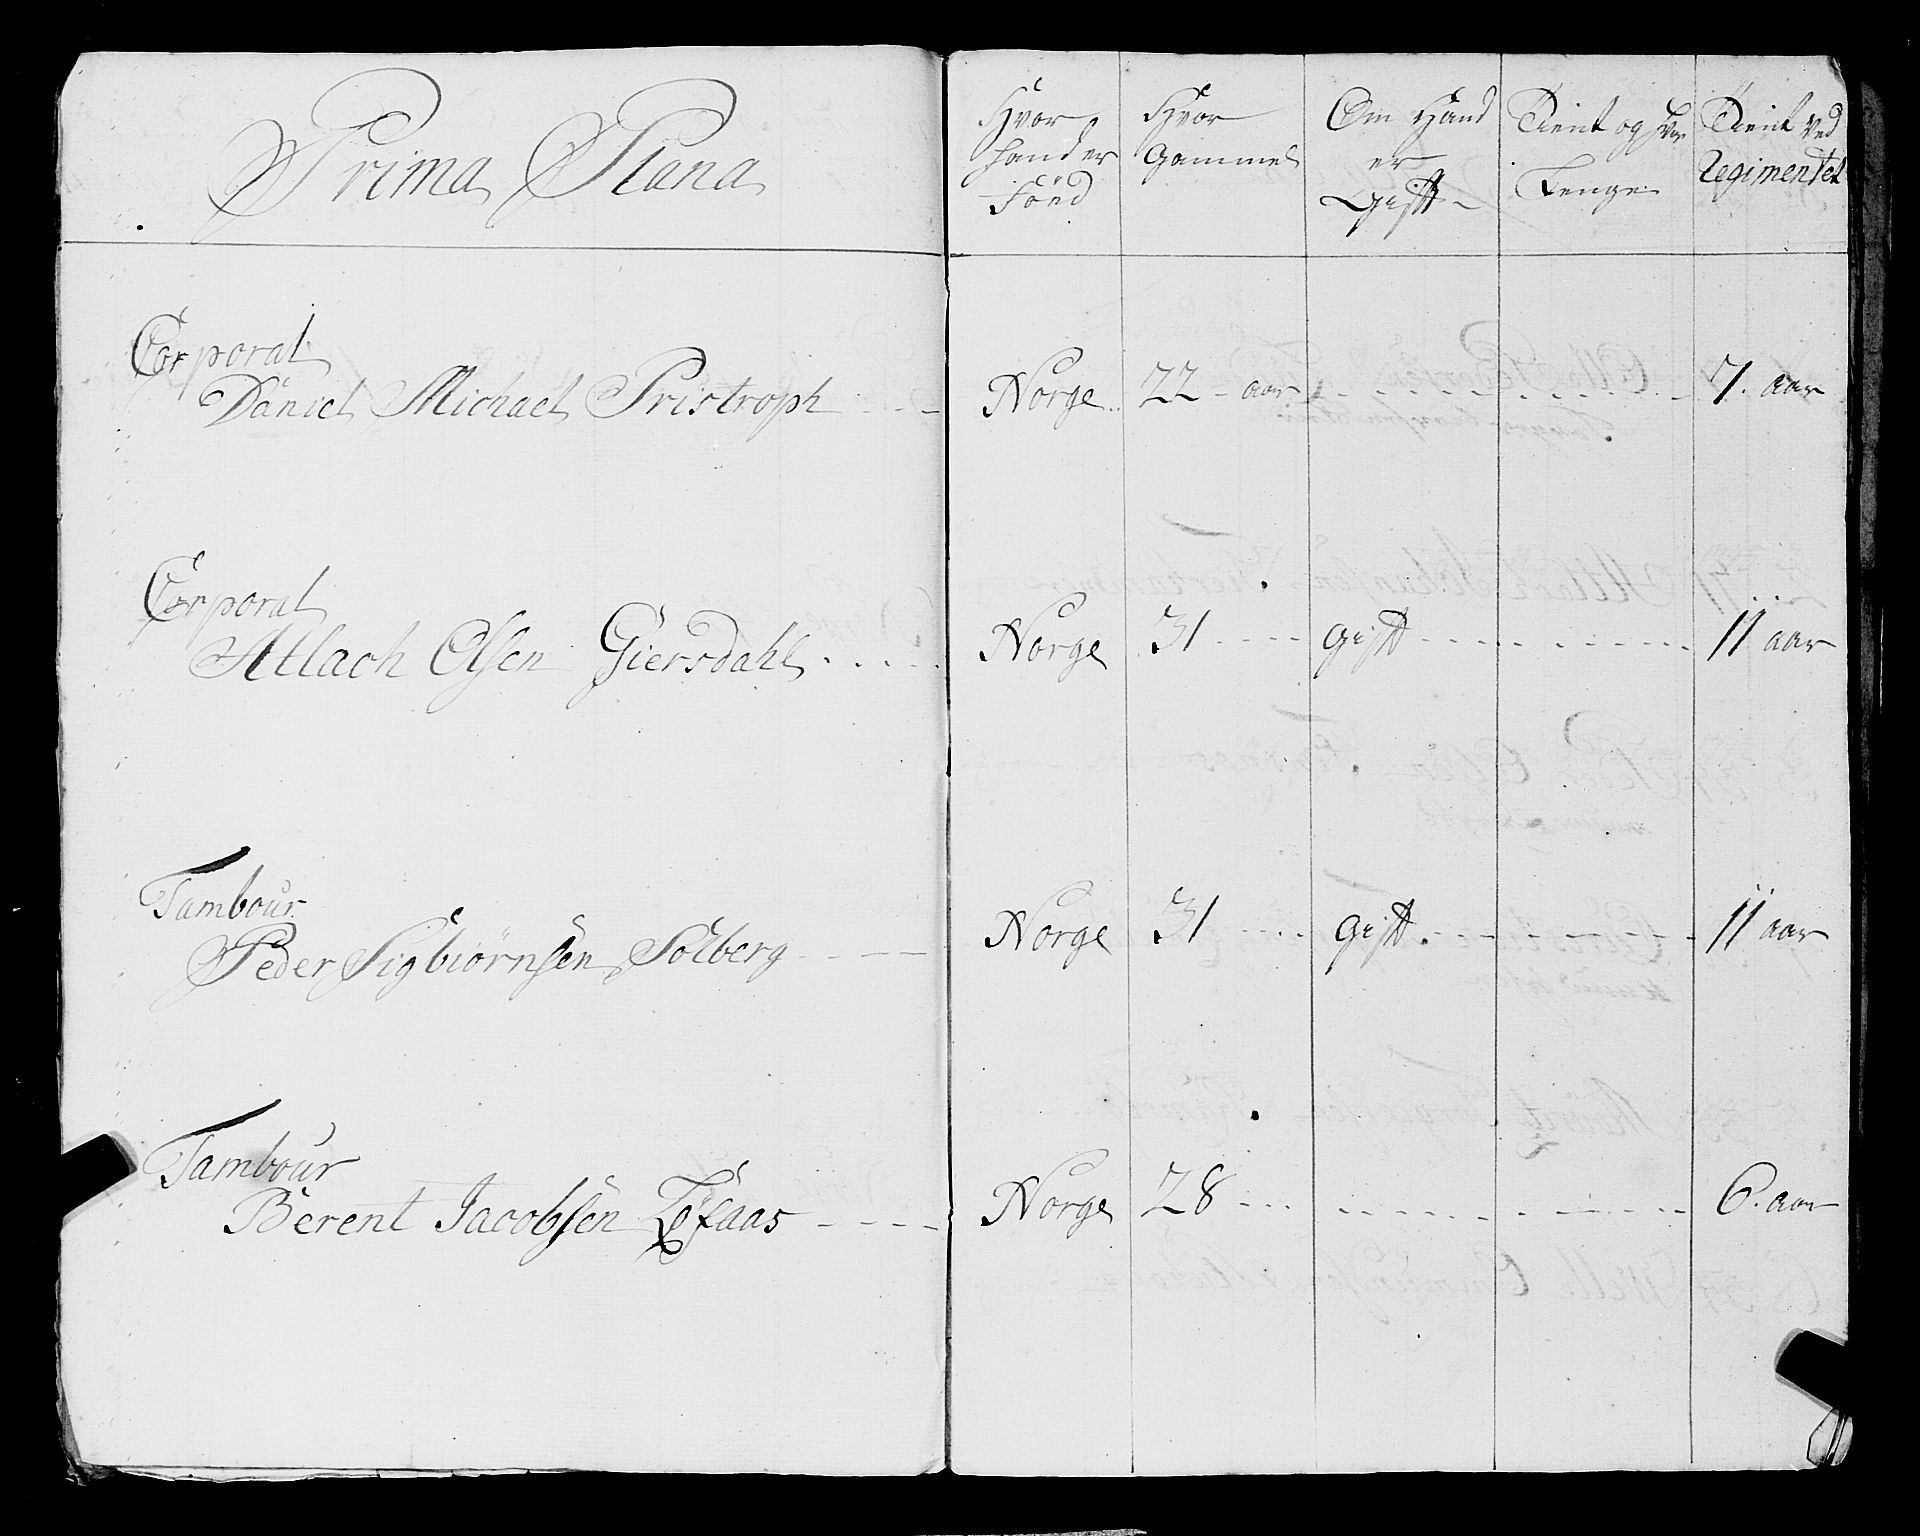 Prima Plana
Hvor hand er Föed
Hvor Gammel
Om Hand er Gift
Tient og hvor Lenge
Tient ved Regimentet
Corporal
Daniel Michael Pristroph Norge 22 aar 7. aar
Corporal
Atlach Olsen Giersdahl Norge 31 Gift 11 aar
Tambour
Peder Sigbiörnsen Solberg Norge 31 Gift 11 aar
Tambour
Berent Jacobsen Norge 28 6. aar